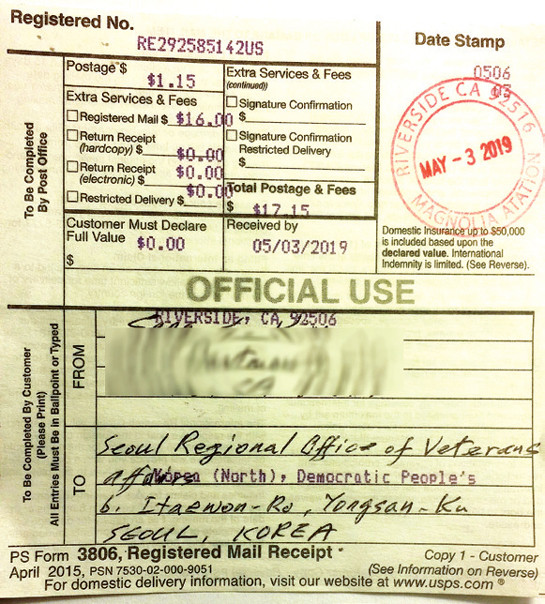 Registered No.
RE292585142US
Date Stamp
0506
03
RIVERSIDE CA 92516
MAY - 3 2019
MAGNOLIA STATION
To Be Completed
By Post Office
Postage $
$1.15
Extra Services & Fees
Registered Mail $ $16.00
Return Receipt
(hardcopy) $ $0.00
Return Receipt
(electronic) $ $0.00
Restricted Delivery $ $0.00
Extra Services & Fees
(continued)
Signature Confirmation
$
Signature Confirmation
Restricted Delivery
$
Total Postage & Fees
$ $17.15
Customer Must Declare
Full Value $0.00
$
Received by
05/03/2019
Domestic Insurance up to $50,000
is included based upon the
declared value. International
Indemnity is limited. (See Reverse).
OFFICIAL USE
To Be Completed By Customer
(Please Print)
All Entries Must Be in Ballpoint or Typed
FROM
RIVERSIDE, CA 92506
TO
Seoul Regional Office of Veterans
affairs
Korea (North), Democratic People's
6. Itaewon-Ro, Yongsan-Ku
SEOUL, KOREA
PS Form 3806, Registered Mail Receipt
Copy 1 - Customer
April 2015, PSN 7530-02-000-9051
(See Information on Reverse)
For domestic delivery information, visit our website at www.usps.com ®